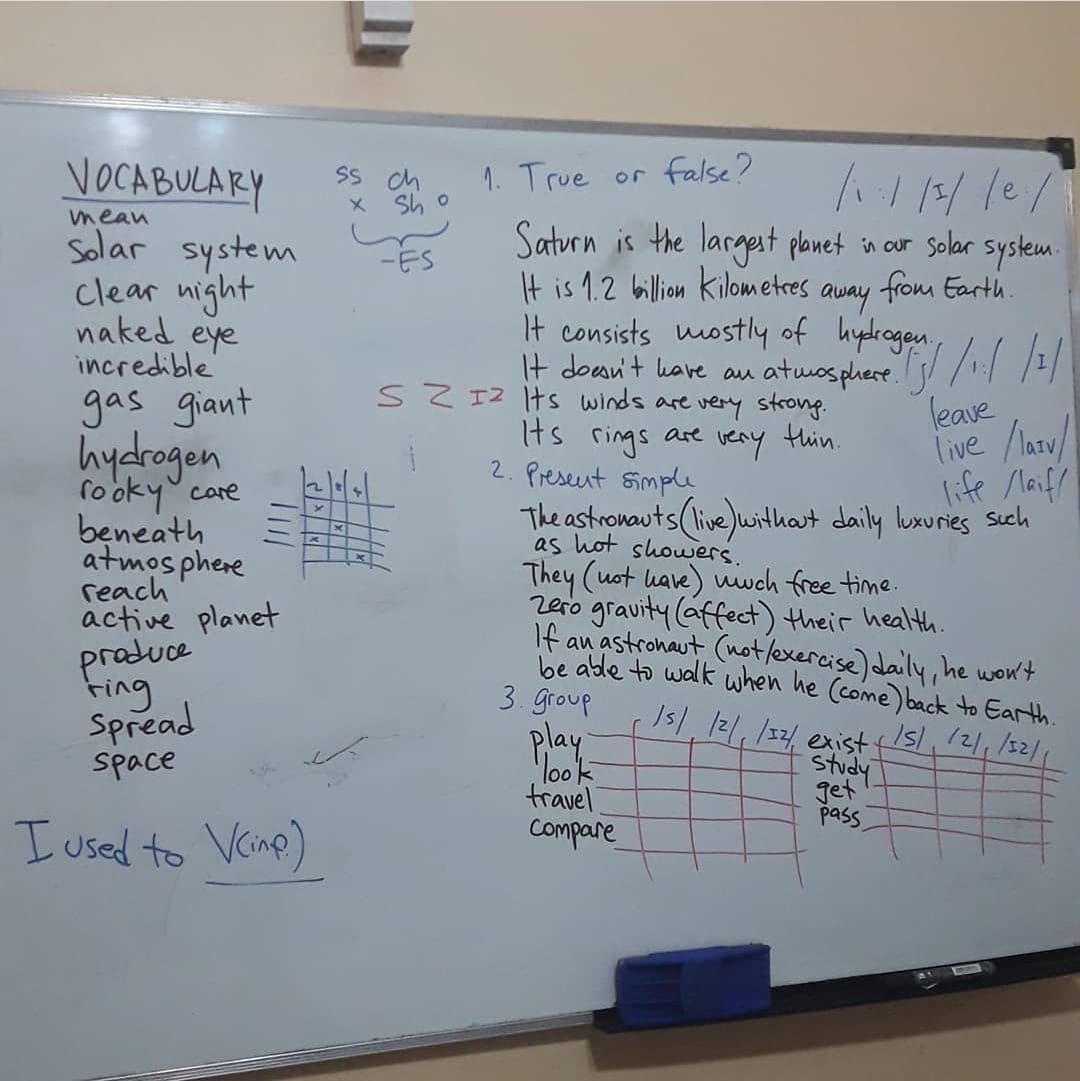 VOCABULARY
mean
solar system
clear night
naked eye
incredible
gas giant
hydrogen
rooky care
beneath
atmosphere
reach
active planet
produce
ring
spread
space
I used to V(inf.)
ss ch
x sh o
-ES
S Z IZ
1. True or false?
/i:/ /I/ /e:/
Saturn is the largest planet in our solar system.
It is 1.2 billion kilometres away from Earth.
It consists mostly of hydrogen.
It doesn't have an atmosphere.
Its winds are very strong.
Its rings are very thin.
/i:/ /I/
leave
live /laIv/
life /laif/
2. Present simple
The astronauts (live) without daily luxuries such
as hot showers.
They (not have) much free time.
Zero gravity (affect) their health.
If an astronaut (not/exercise) daily, he won't
be able to walk when he (come) back to Earth.
3. group
/s/ /z/ /Iz/
play
look
travel
compare
/s/ /z/ /Iz/
exist
study
get
pass